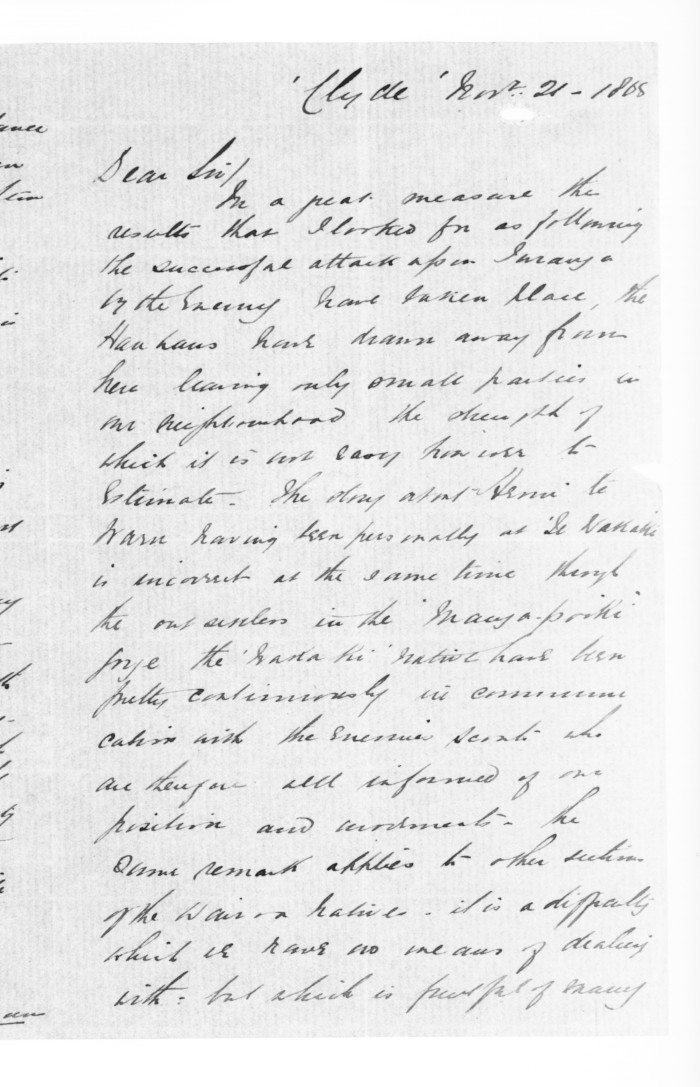 'Clyde' Novr. 21 - 1868
Dear Sir/
In a great measure the
results that I looked for as following
the successful attack upon Turanga
by the Enemy have taken place, the
Hauhaus have drawn away from
here leaving only small parties in
our neighbourhood the strength of
which it is not easy however to
Estimate. The story about Henri te
Waru having been personally at 'Te
is incorrect at the same time through
the out settlers in the Manga-poiki
gorge the native have been
pretty continuously in communi
cation with the Enemies Scouts who
are therefore well informed of our
position and movements - the
Same remark applies to other section
of the Wairoa Natives - it is a difficulty
which we have no means of dealing
with - but which is fruitful of many